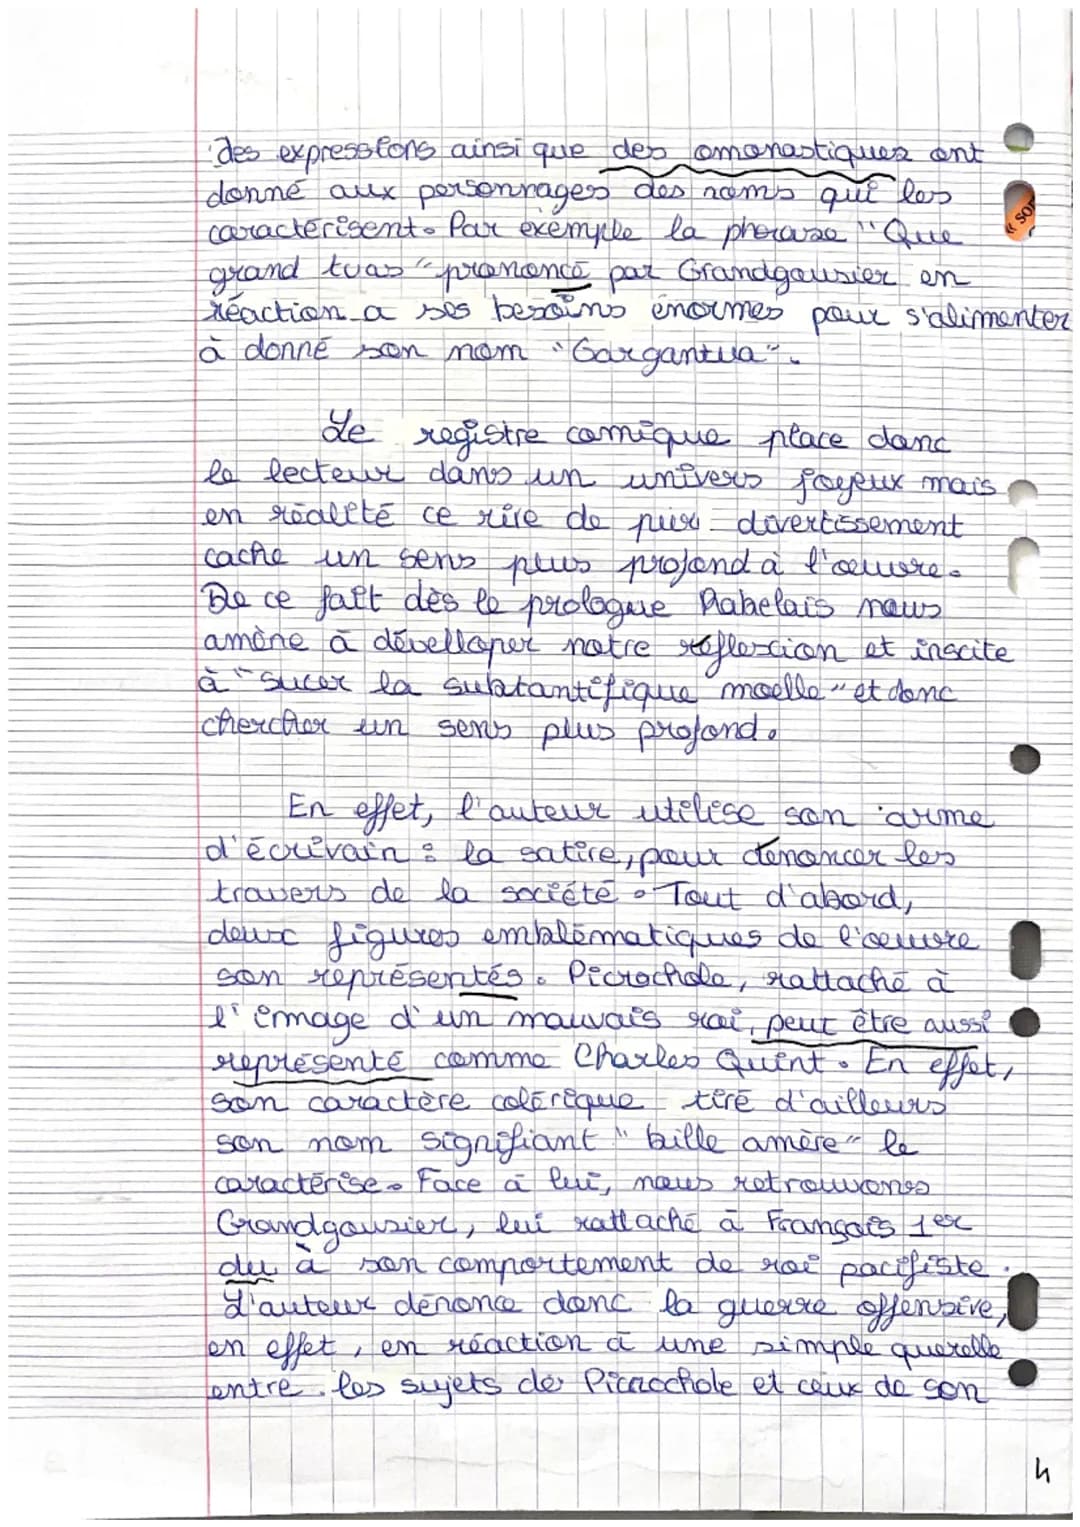 des expressions ainsi que des omonastiques ont
donné aux personnages des noms qui les
caractérisent. Par exemple la phrase "Que
grand tu as" prononcé par Grandgousier en
réaction a ses besoins énormes pour s'alimenter
à donné son nom "Gargantua".
Le registre comique place donc
le lecteur dans un univers joyeux mais
en réalité ce rire de pur divertissement
cache un sens plus profond à l'œuvre.
De ce fait dès le prologue Rabelais nous
amène à dévelloper notre reflexcion et inscite
à "sucer la substantifique moelle" et donc
chercher un sens plus profond.
En effet, l'auteur utilise son arme
d'écrivain : la satire, pour dénoncer les
travers de la société. Tout d'abord,
deux figures emblématiques de l'œuvre
son représentés. Picrochole, rattaché à
l'image d'un mauvais roi, peut être aussi
représenté comme Charles Quint. En effet,
son caractère colérique tiré d'ailleurs
son nom signifiant "bille amère" le
caractérise. Face à lui, nous retrouvons
Grandgousier, lui rattaché à François 1er
du à son comportement de roi pacifiste.
L'auteur dénonce donc la guerre offensive,
en effet, en réaction à une simple querelle
entre les sujets de Picrochole et ceux de son
4